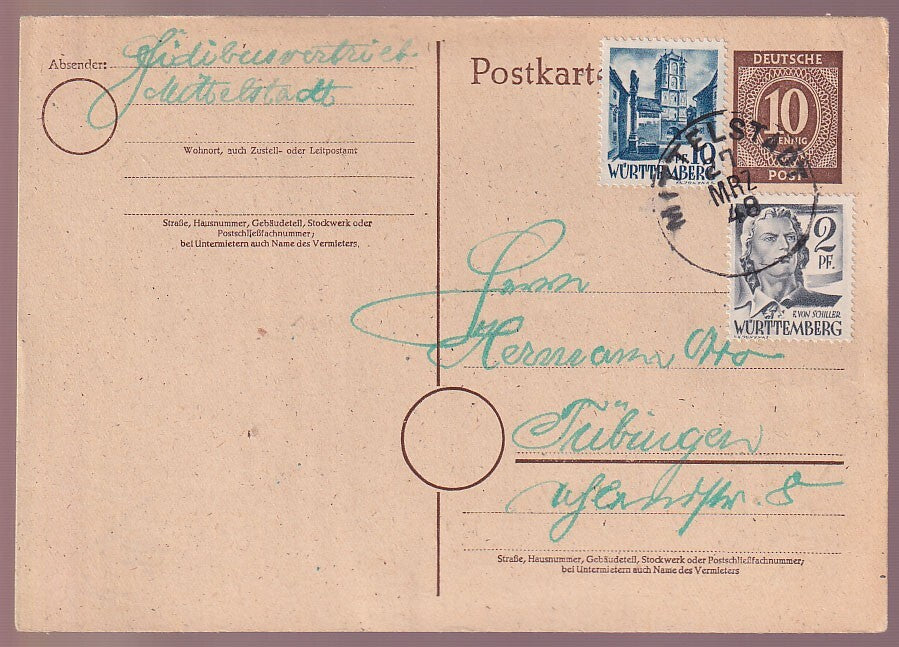 Absender: Fidibusvertrieb
Mittelstadt
Wohnort, auch Zustell- oder Leitpostamt
Straße, Hausnummer, Gebäudeteil, Stockwerk oder
Postschließfachnummer;
bei Untermietern auch Name des Vermieters.
Postkarte
PF. 10
WÜRTTEMBERG
DEUTSCHE
10
PFENNIG
POST
MITTELSTADT
27
MRZ
48
2
PF.
F. VON SCHILLER
WÜRTTEMBERG
Herrn
Hermann Otto
Tübingen
Uhlandstr. 8
Straße, Hausnummer, Gebäudeteil, Stockwerk oder Postschließfachnummer;
bei Untermietern auch Name des Vermieters